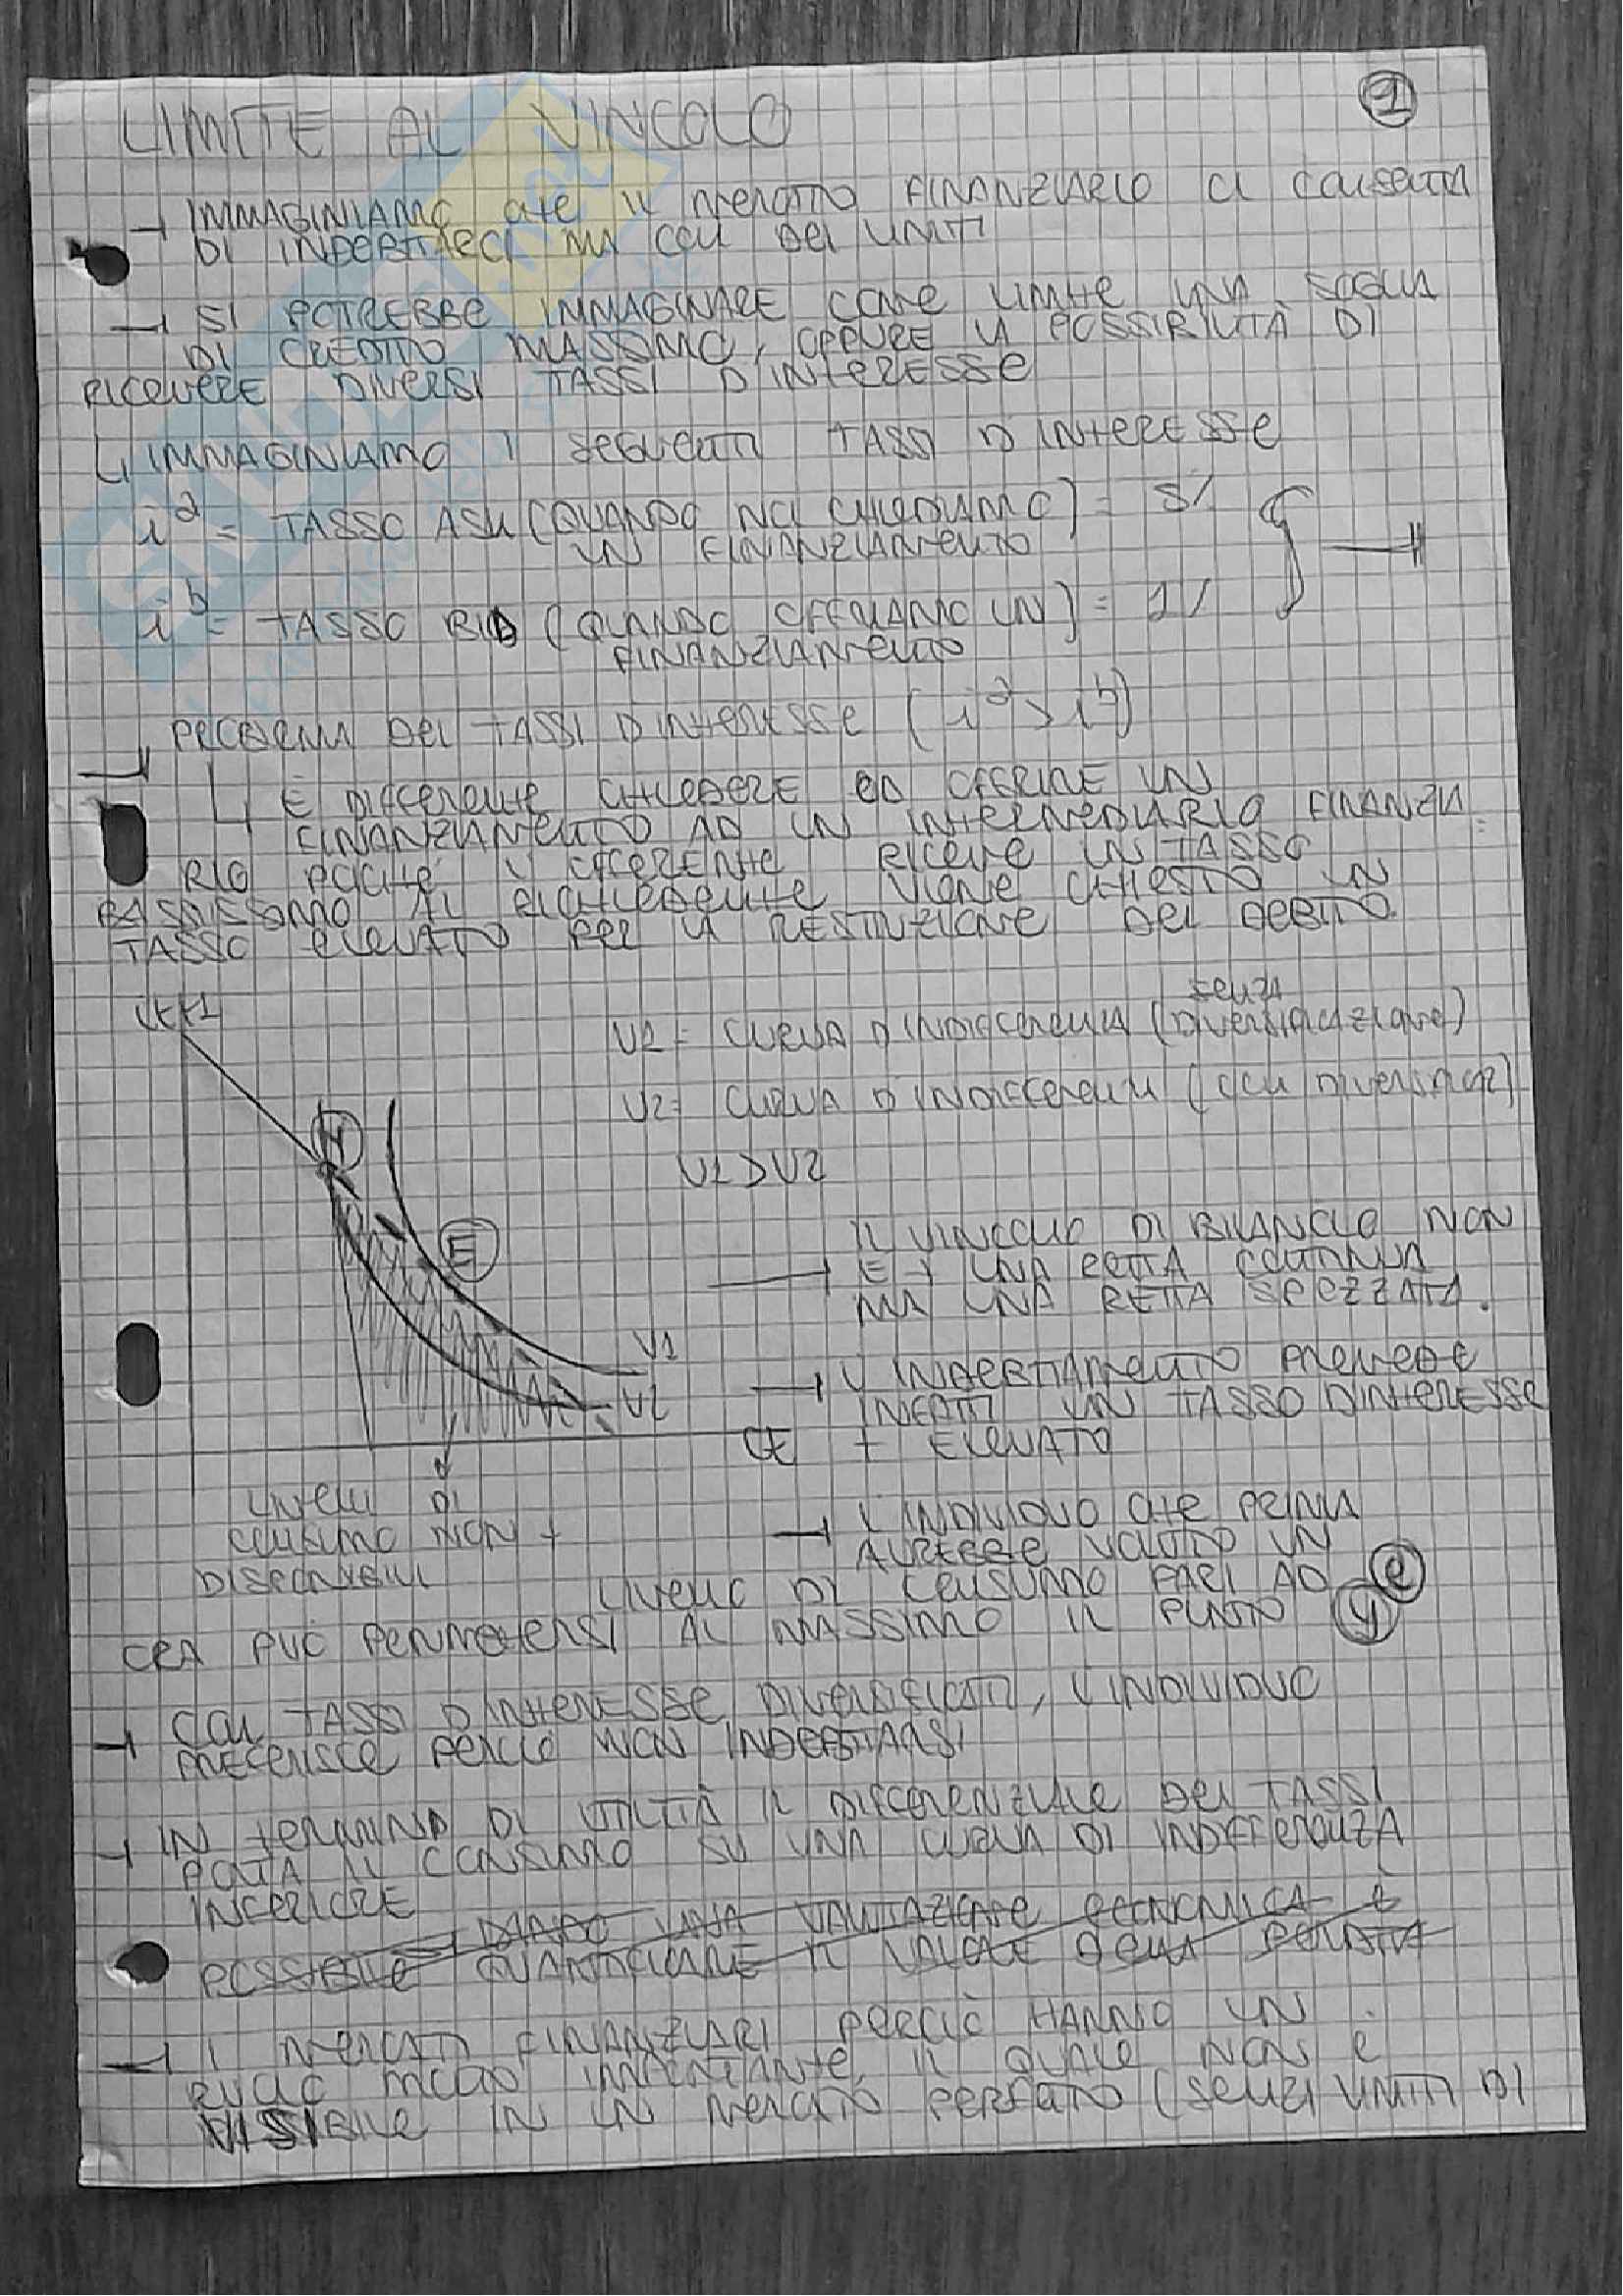 1
LIMITE AL VINCOLO
→ IMMAGINIAMO CHE IL MERCATO FINANZIARIO CI CONSENTA
DI INDEBITARCI MA CON DEI LIMITI
→ SI POTREBBE IMMAGINARE COME LIMITE UNA SOGLIA
DI CREDITO MASSIMO, OPPURE LA POSSIBILITÀ DI
RICEVERE DIVERSI TASSI D'INTERESSE
↳ IMMAGINIAMO I SEGUENTI TASSI D'INTERESSE
i^a = TASSO ASK (QUANDO NOI CHIEDIAMO) = 5%
UN FINANZIAMENTO
i^b = TASSO BID (QUANDO OFFRIAMO UN) = 1%
FINANZIAMENTO
PROBLEMA DEI TASSI D'INTERESSE (i^a > i^b)
↳ È DIFFERENTE CHIEDERE ED OFFRIRE UN
FINANZIAMENTO AD UN INTERMEDIARIO FINANZIA
RIO POICHÉ L'OFFERENTE RICEVE UN TASSO
BASSISSIMO AL RICHIEDENTE VIENE CHIESTO UN
TASSO ELEVATO PER LA RESTITUZIONE DEL DEBITO.
Ct+1
senza
U1 = CURVA D'INDIFFERENZA (DIVERSIFICAZIONE)
U2 = CURVA D'INDIFFERENZA (CON DIVERSIFICAZ)
U1 > U2
Y
E
IL VINCOLO DI BILANCIO NON
È + UNA RETTA CONTINUA
MA UNA RETTA SPEZZATA.
U1
U2
→ L'INDEBITAMENTO PREVEDE
INFATTI UN TASSO D'INTERESSE
Ct
+ ELEVATO
LIVELLI DI
CONSUMO NON +
DISPONIBILI
→ L'INDIVIDUO CHE PRIMA
AVREBBE VOLUTO UN
LIVELLO DI CONSUMO PARI AD e
ORA PUÒ PERMETTERSI AL MASSIMO IL PUNTO y
→ CON TASSI D'INTERESSE DIVERSIFICATI, L'INDIVIDUO
PREFERISCE PERCIÒ NON INDEBITARSI
→ IN TERMINI DI UTILITÀ IL DIFFERENZIALE DEI TASSI
PORTA IL CONSUMO SU UNA CURVA DI INDIFFERENZA
INFERIORE
DANDO UNA VALUTAZIONE ECONOMICA È
POSSIBILE QUANTIFICARE IL VALORE DELLA PERDITA
→ I MERCATI FINANZIARI PERCIÒ HANNO UN
RUOLO MOLTO IMPORTANTE, IL QUALE NON È
VISIBILE IN UN MERCATO PERFETTO (SENZA LIMITI DI